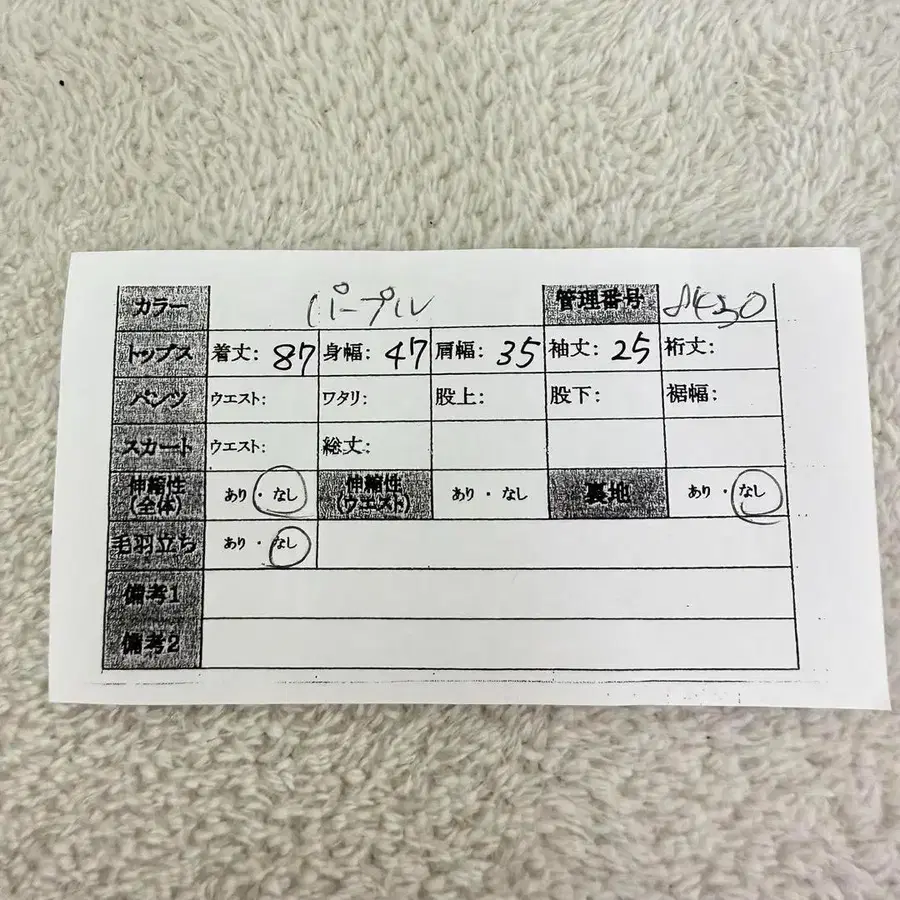 カラー パープル 管理番号
トップス 着丈: 87 身幅: 47 肩幅: 35 袖丈: 25 裄丈:
パンツ ウエスト: ワタリ: 股上: 股下: 裾幅:
スカート ウエスト: 総丈:
伸縮性 伸縮性
(全体) あり・なし (ウエスト) あり・なし 裏地 あり・なし
毛羽立ち あり・なし
備考1
備考2